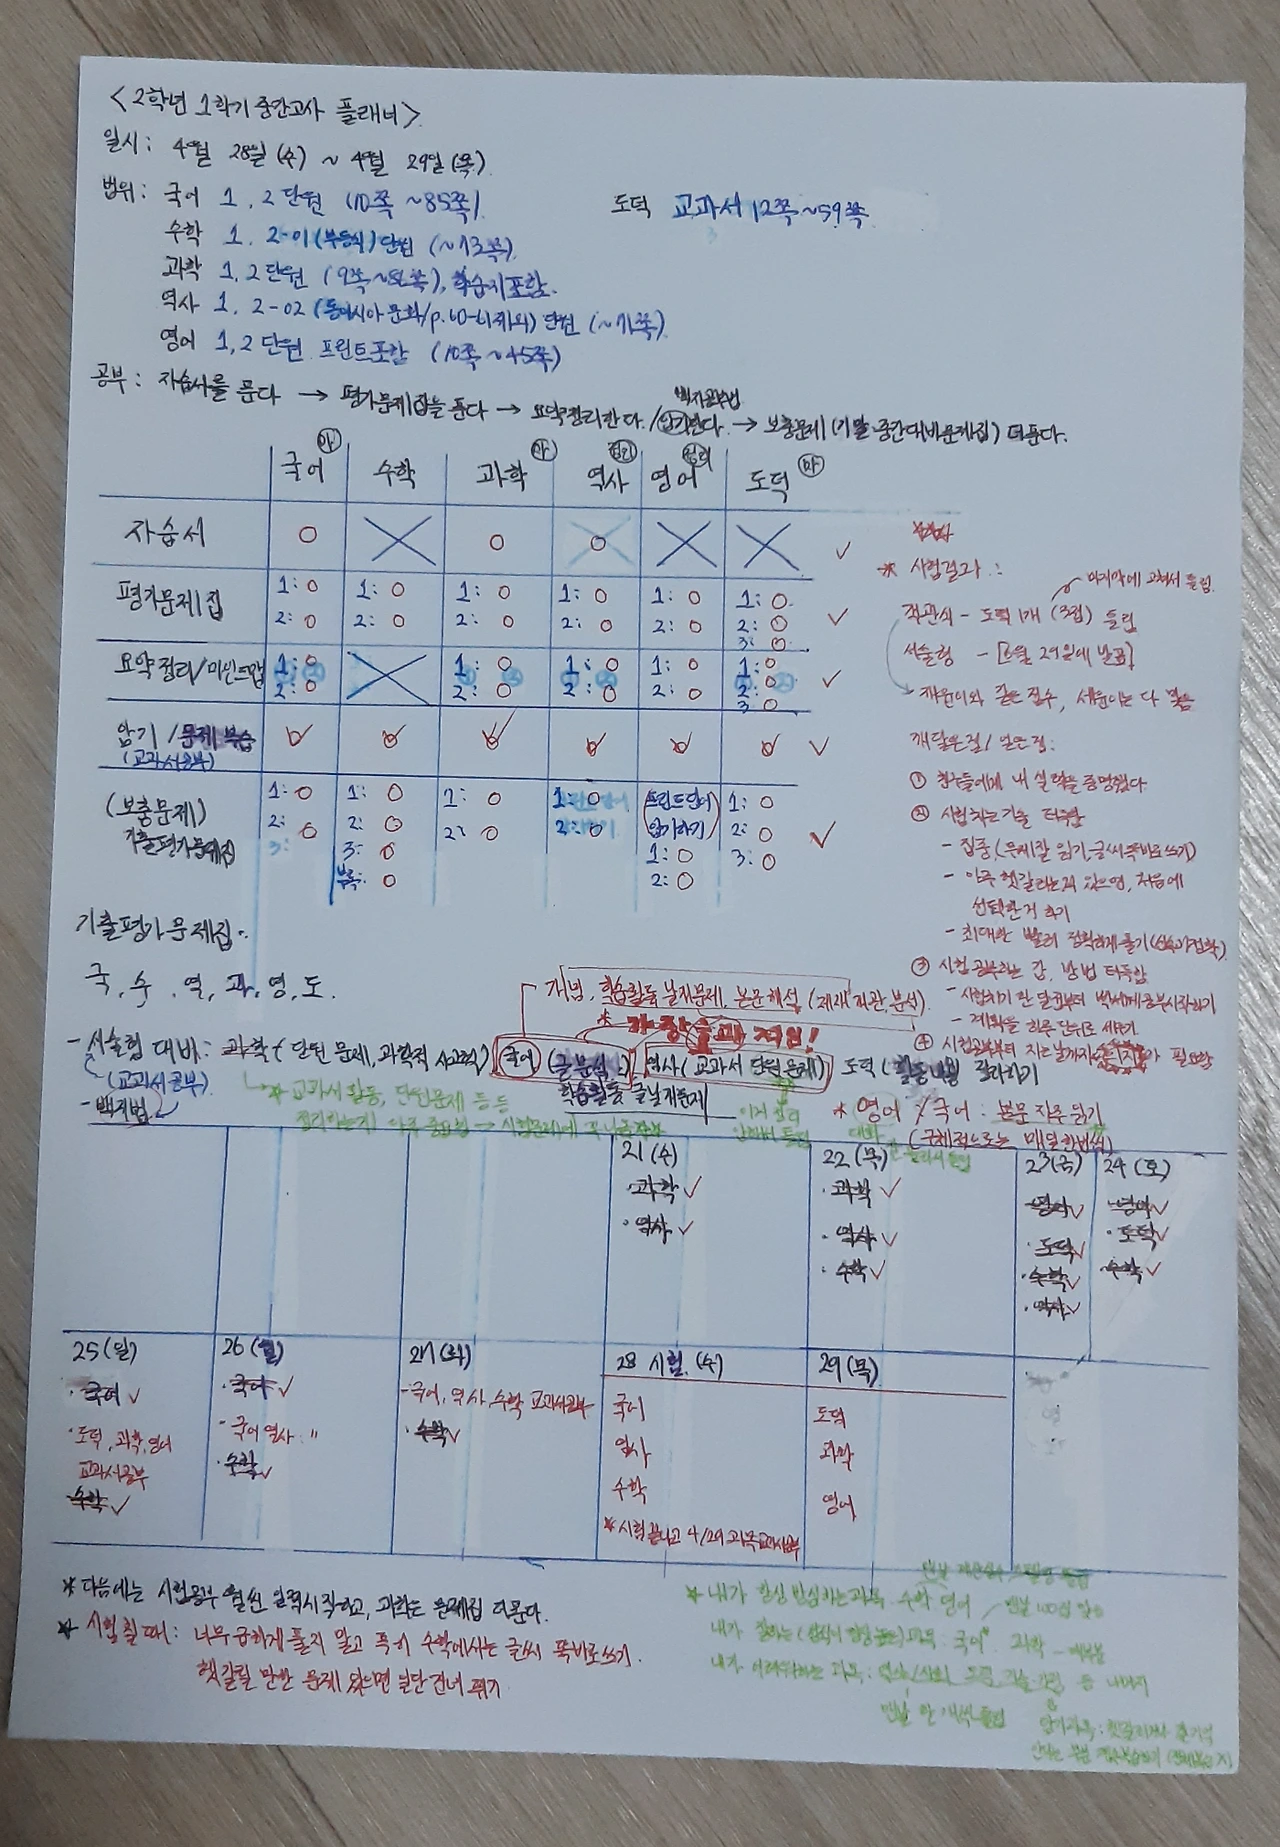 <2학년 1학기 중간고사 플래너>
일시: 4월 28일 (수) ~ 4월 29일 (목)
범위: 국어 1, 2단원 (10쪽 ~85쪽)
도덕 교과서 12쪽~59쪽
수학 1, 2-01 (부등식) 단원 (~73쪽)
과학 1, 2단원 (9쪽~ ), 학습지포함.
역사 1, 2-02 (동아시아 문화/p.60-61제외) 단원 (~71쪽)
영어 1, 2단원 프린트포함 (10쪽 ~45쪽)
백지공부법
공부: 자습서를 푼다 → 평가문제집을 푼다 → 요약정리한다./암기한다. → 보충문제 (기말·중간대비문제집) 더푼다.
국어 수학 과학 역사 영어 도덕
정리 정리
자습서
평가문제집
1: 1: 1: 1: 1: 1:
2: 2: 2: 2: 2: 2:
3:
요약정리/마인드맵
1: 1: 1: 1: 1:
2: 2: 2: 2: 2:
3
암기/문제 복습
(교과서공부)
(보충문제)
기출평가문제집
1: 1: 1: 1: 프린트단어 1:
2: 2: 2: 2: 암기하기 2:
3: 3: 1: 3:
부록: 2:
* 시험결과:
마지막에 고쳐서 틀림.
객관식 - 도덕 1개 (3점) 틀림
서술형 - 29일에 발표]
같은 점수, 다 맞음
깨달은점/얻은점:
① 친구들에게 내 실력을 증명했다
② 시험치는 기술 터득함
- 집중, (문제잘 읽기, 글씨 똑바로쓰기)
- 아주 헷갈리는게 있으면, 처음에
선택한거 하기
- 최대한 빨리 정확하게 풀기
③ 시험공부하는 감, 방법 터득함
- 시험치기 한 달전부터 공부시작하기
- 계획을 하루 단위로 세우기
④ 시험공부부터 치는날까지 필요함
기출평가문제집:
국, 수, 역, 과, 영, 도.
개념, 학습활동 날개문제, 본문해석 분석).
- 서술형 대비: 과학 (단원 문제, 과학적 사고력) 국어 (글분석 역사 (교과서 단원문제) 도덕 정리하기
(교과서공부)
학습활동 글날개문제
- 백지법
* 교과서 활동, 단원문제 등등
정리하는거 아주 중요함 → 시험문제에
* 영어 / 국어: 본문 자주 읽기
대화
(구체적으로는 매일한번씩)
21 (수) 22 (목) 23 (금) 24 (토)
· 과학 · 과학 · 영어 · 영어
· 역사 · 역사 · 도덕 · 도덕
· 수학 · 수학 · 수학
· 역사
25 (일) 26 (월) 27 (화) 28 시험 (수) 29 (목)
· 국어 · 국어 - 국어, 역사, 수학 교과서공부 국어 도덕
· 도덕, 과학, 영어 - 국어 역사 " · 수학 역사 과학
교과서공부 · 수학 수학 영어
· 수학
* 시험 끝나고 4/29
* 다음에는 시험공부 훨씬 일찍시작하고, 과학은 문제집 더푼다.
* 시험 칠 때: 너무 급하게 풀지 말고 특히 수학에서는 글씨 똑바로쓰기.
헷갈릴 만한 문제 있으면 일단 건너 뛰기
* 내가 항상 과목: 수학 영어
내가 잘하는 과목: 국어 과학
내가 어려워하는 과목: 등 나머지
암기과목: